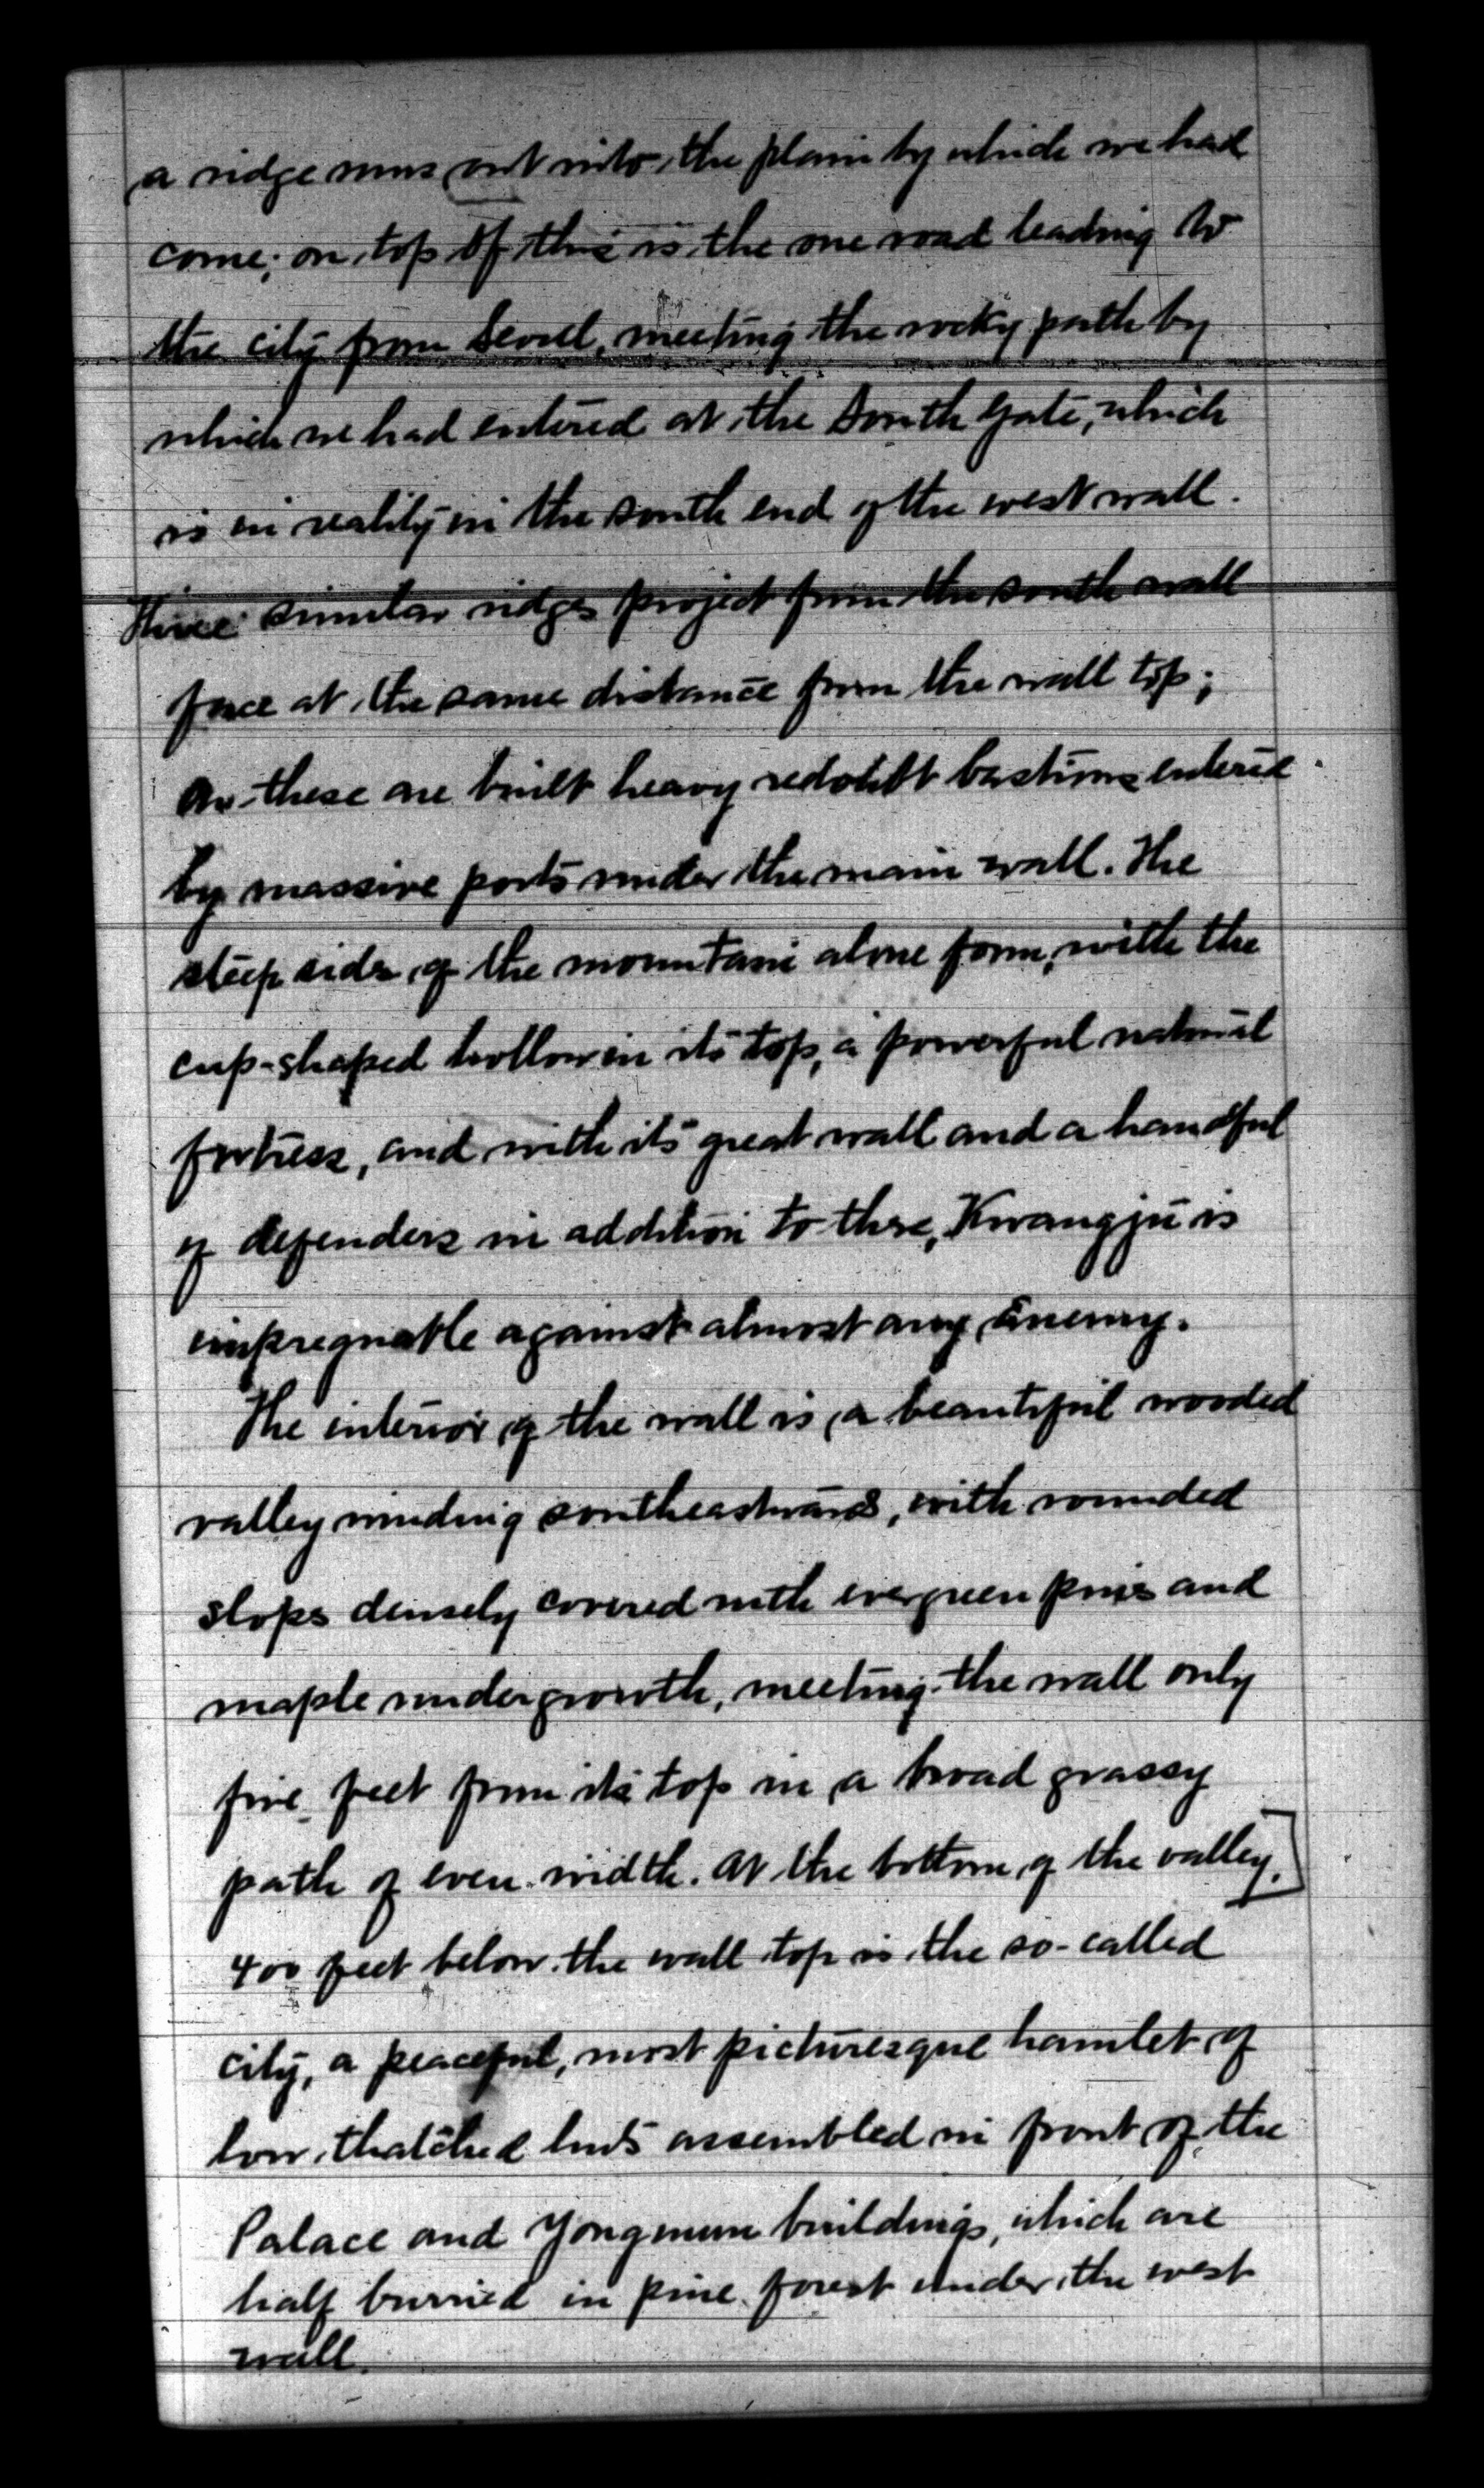 a ridge runs out into the plain by which we had
come; on top of this is the one road leading to
the city from Seoul, meeting the rocky path by
which we had entered at the South Gate, which
is in reality in the south end of the west wall.
Three similar ridges project from the south wall
face at the same distance from the wall top;
on these are built heavy redoubt bastions entered
by massive ports under the main wall. The
steep sides of the mountain alone form, with the
cup-shaped hollow in its top, a powerful natural
fortress, and with its great wall and a handful
of defenders in addition to these, Kwangju is
impregnable against almost any enemy.
The interior of the wall is a beautiful wooded
valley winding southeastward, with rounded
slopes densely covered with evergreen pines and
maple undergrowth, meeting the wall only
five feet from its top in a broad grassy
path of even width. At the bottom of the valley,
400 feet below the wall top is the so-called
city, a peaceful, most picturesque hamlet of
low thatched huts assembled in front of the
Palace and Yongmun buildings, which are
half burried in pine forest under the west
wall.